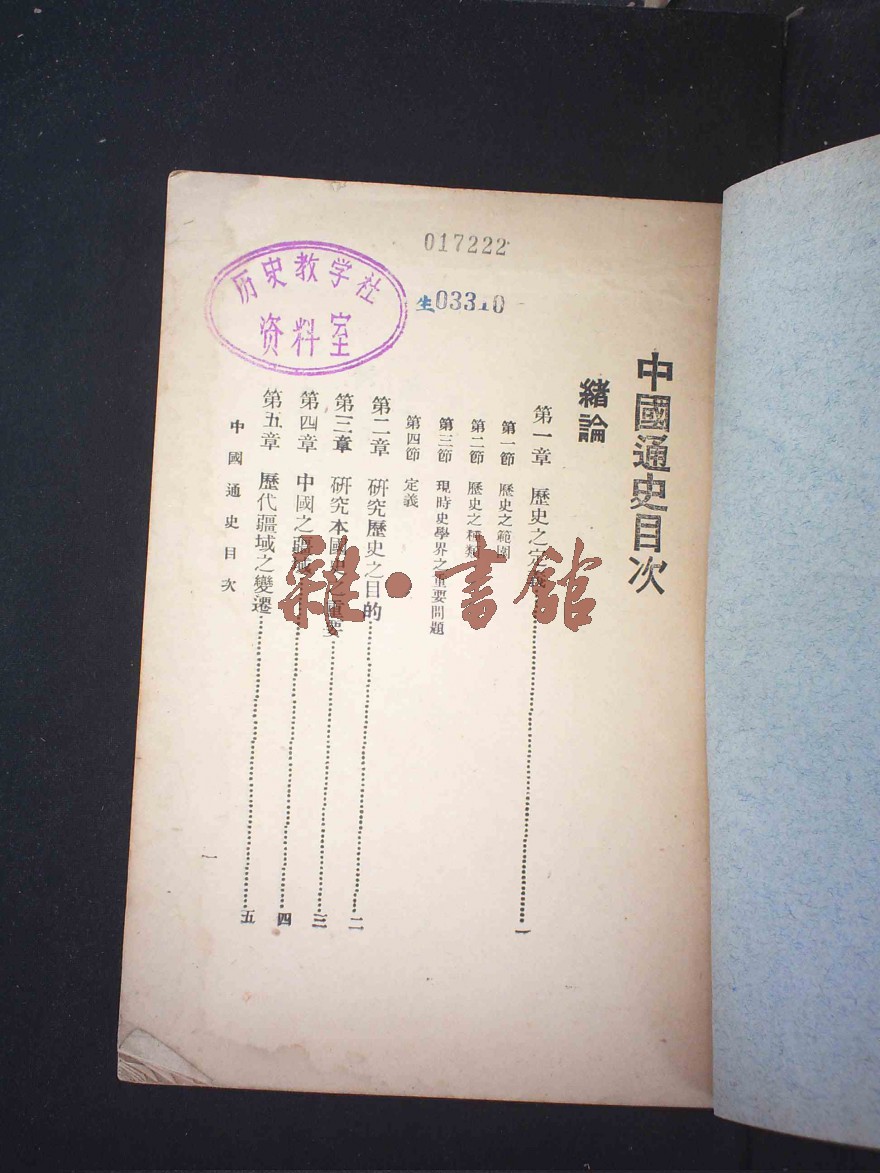 中國通史目次
緒論
第一章 歷史之定義……一
第一節 歷史之範圍
第二節 歷史之種類
第三節 現時史學界之重要問題
第四節 定義
第二章 研究歷史之目的……二
第三章 研究本國史之重要……三
第四章 中國之疆域……四
第五章 歷代疆域之變遷……五
中國通史目次
一
017222
生03310
历史教学社
资料室
雜·書館